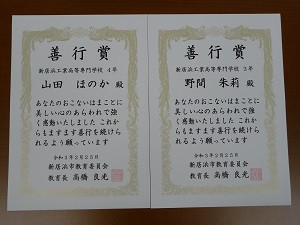 善行賞
新居浜工業高等専門学校 4年
山田 ほのか 殿
あなたのおこないはまことに
美しい心のあらわれで強
く感動いたしました これか
らもますます善行を続けら
れるよう願っています
令和3年2月25日
新居浜市教育委員会
教育長 高橋 良光
善行賞
新居浜工業高等専門学校 3年
野間 朱莉 殿
あなたのおこないはまことに
美しい心のあらわれで強
く感動いたしました これか
らもますます善行を続けら
れるよう願っています
令和3年2月25日
新居浜市教育委員会
教育長 高橋 良光